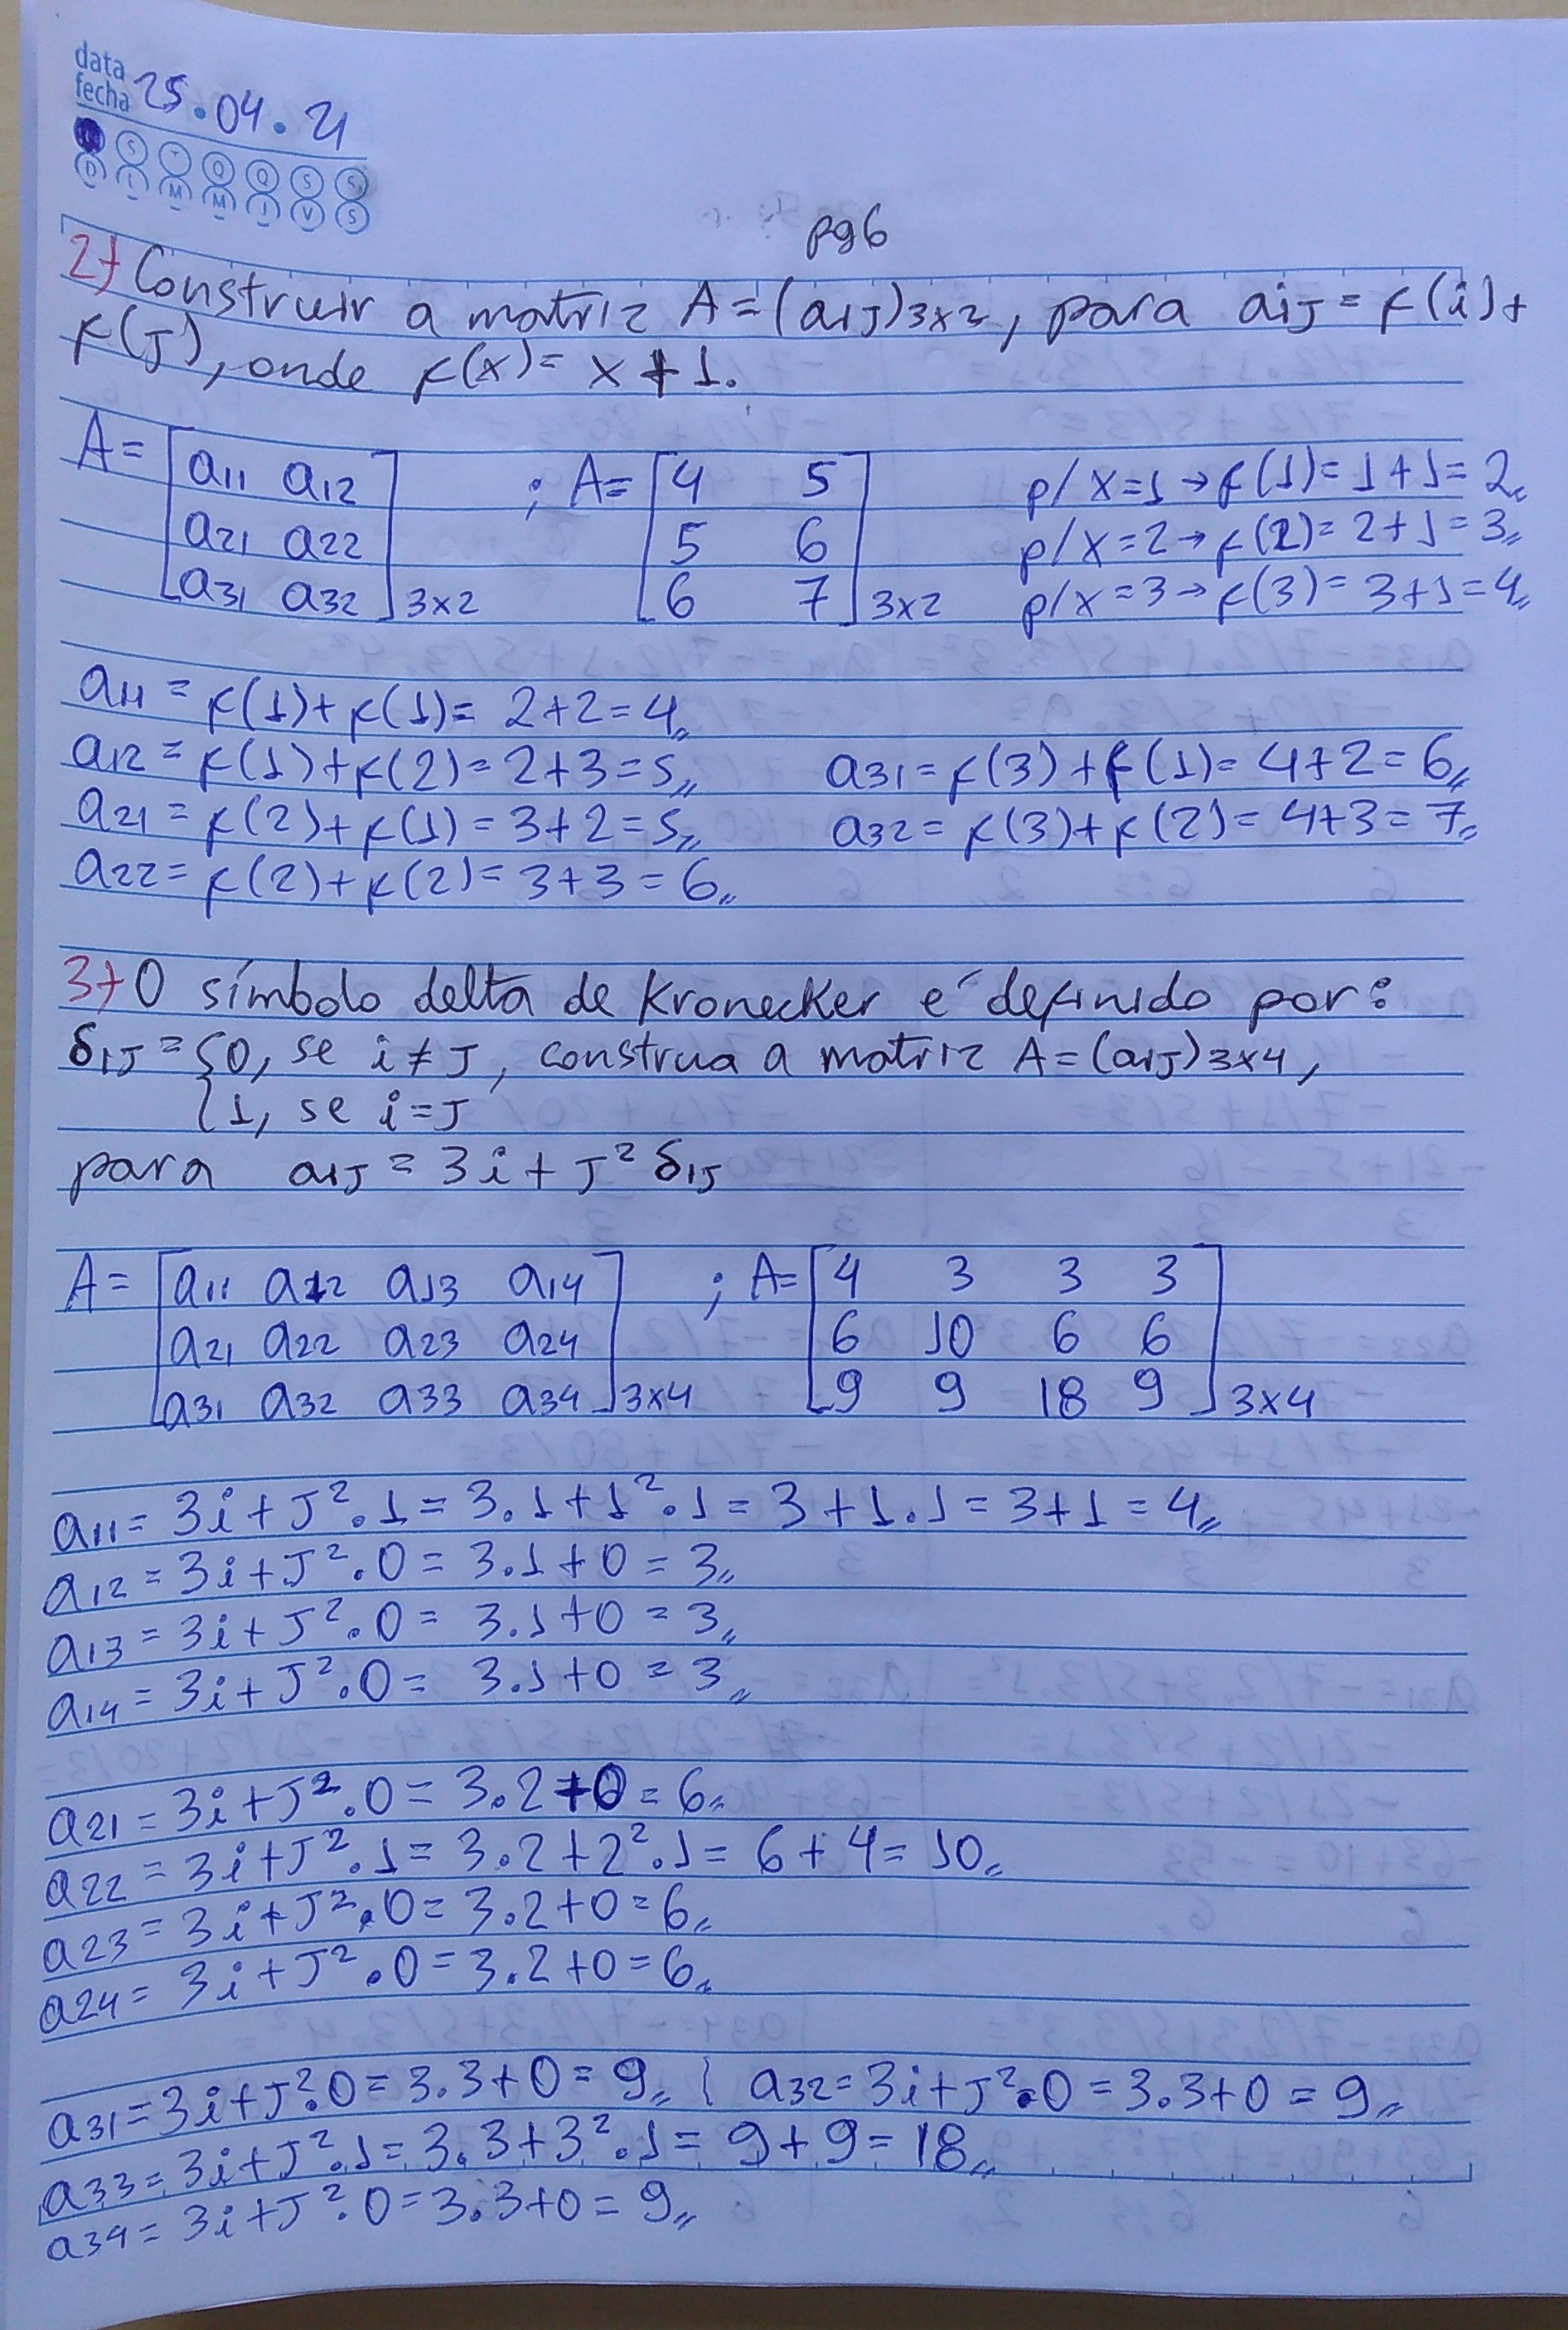 data
fecha 25.04.21
S T Q Q S S
D L M M J V S
pg6
2) Construir a matriz A=(aIJ)3x2, para aiJ = f(i)+
f(J), onde f(x)= x+1.
A= [a11 a12 ; A= [4 5] p/x=1→f(1)=1+1=2
a21 a22 5 6 p/x=2→f(2)=2+1=3
a31 a32]3x2 6 7]3x2 p/x=3→f(3)=3+1=4
a11 = f(1)+f(1)= 2+2=4
a12 = f(1)+f(2)=2+3=5 a31=f(3)+f(1)=4+2=6
a21 = f(2)+f(1)=3+2=5 a32=f(3)+f(2)=4+3=7
a22= f(2)+f(2)=3+3=6
3) O símbolo delta de Kronecker é definido por:
δIJ = {0, se i≠J, construa a matriz A=(aIJ)3x4,
{1, se i=J
para aIJ = 3i+J²δIJ
A= [a11 a12 a13 a14 ; A= [4 3 3 3
a21 a22 a23 a24 6 10 6 6
a31 a32 a33 a34]3x4 9 9 18 9]3x4
a11= 3i+J².1=3.1+1².1=3+1.1=3+1=4
a12=3i+J².0=3.1+0=3
a13=3i+J².0= 3.1+0=3
a14=3i+J².0= 3.1+0=3
a21=3i+J².0=3.2+0=6
a22=3i+J².1=3.2+2².1=6+4=10
a23=3i+J².0=3.2+0=6
a24=3i+J².0=3.2+0=6
a31=3i+J².0=3.3+0=9 a32=3i+J².0=3.3+0=9
a33=3i+J².1=3.3+3².1=9+9=18
a34=3i+J².0=3.3+0=9